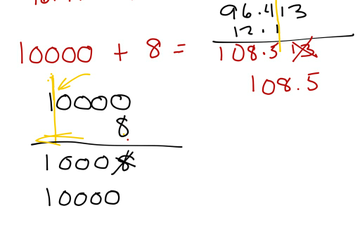 96.413
12.1
10000 + 8 = 108.513
108.5
10000
8
10008
10000